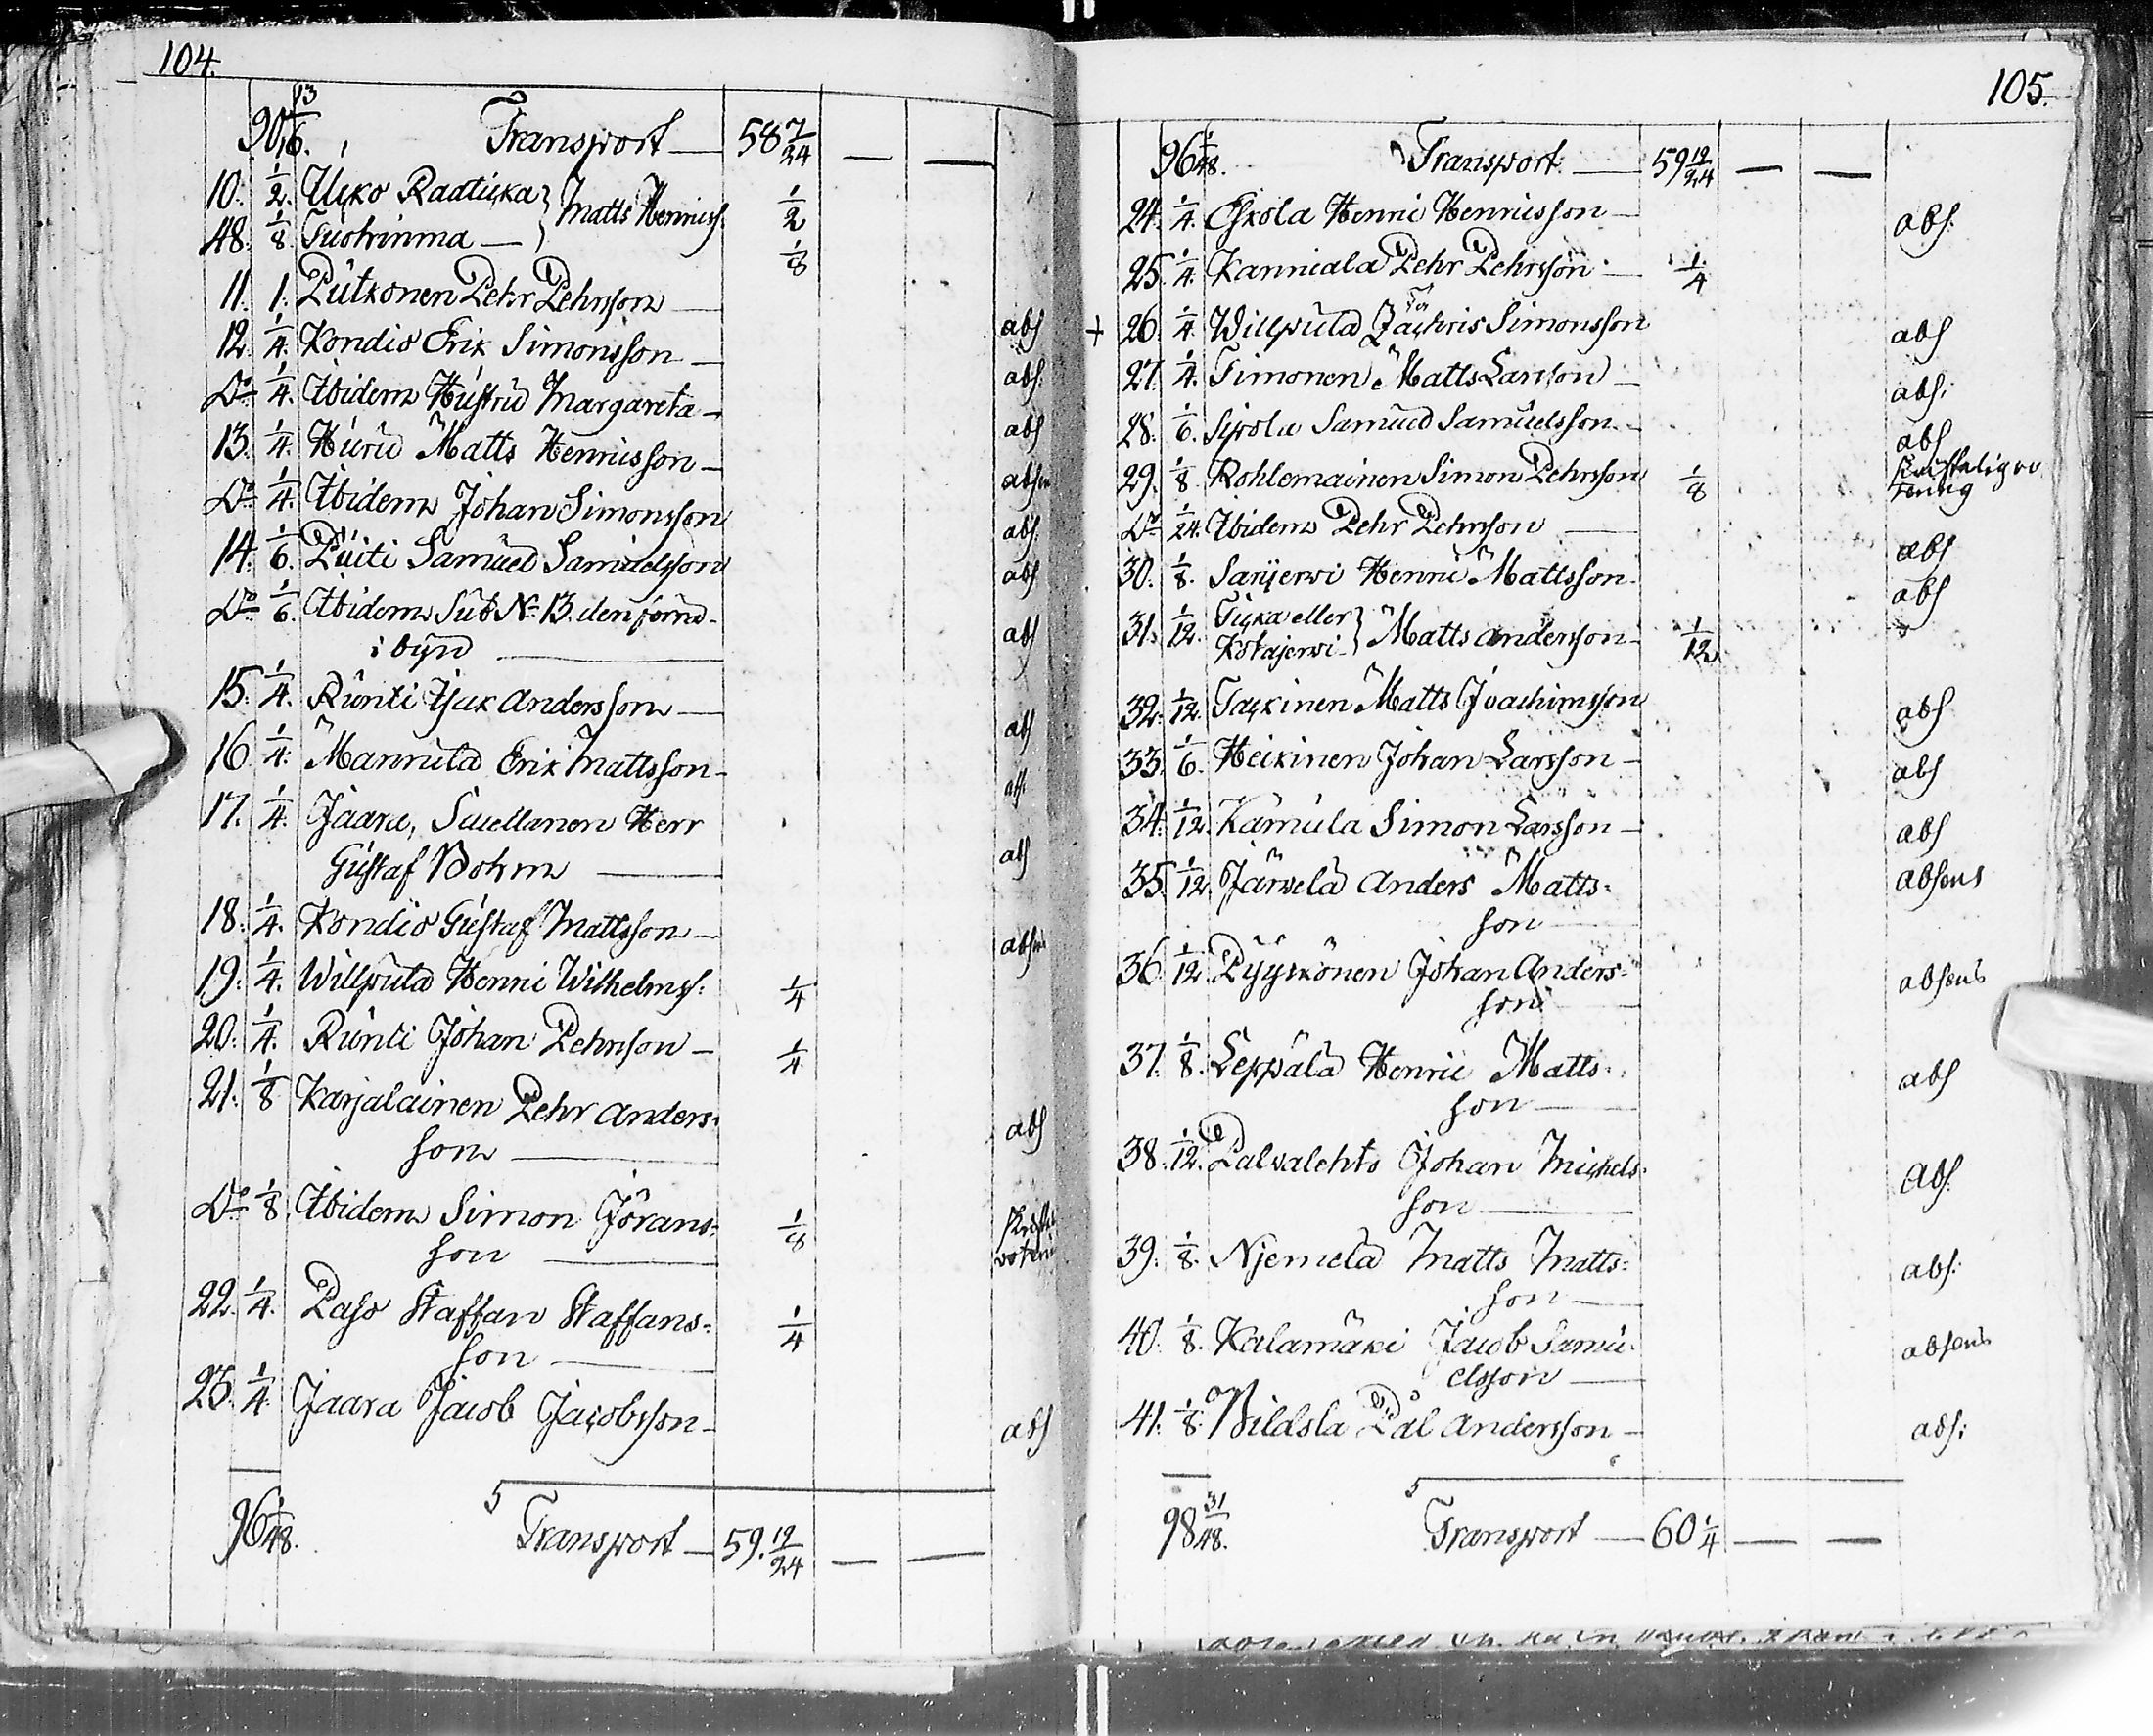 104.
90 13/16. Transport — 58 7/24 — —
10: 1/2. Ucko Raatticka } Matts Henricss: 1/2
48. 1/8. Tuohinma — 1/8
11. 1. Putkonen Pehr Pehrsson — abs
12. 1/4. Kondio Erik Simonsson — abs:
Do 1/4. Ibidem Hustru Margareta — abs
13. 1/4. Huru Matts Henricsson — absen
Do 1/4. Ibidem Johan Simonsson abs:
14. 1/6. Puiti Samuel Samuelsson abs
Do 1/6. Ibidem Sub No 13. den förra
i byn — abs
15. 1/4. Runti Isak Andersson — abs
16. 1/4. Mannula Erik Mattsson — abs.
17. 1/4. Jaara, Snellanen Herr
Gustaf Bohm — abs
18. 1/4. Kondio Gustaf Mattsson — absens
19. 1/4. Willpula Henric Wilhelmss: 1/4
20. 1/4. Runti Johan Pehrsson — 1/4
21. 1/8 Karjalainen Pehr Anders-
son — abs
Do 1/8. Ibidem Simon Görans- 1/8
son —
22. 1/4. Paso Staffan Staffans- 1/4
son —
23. 1/4 Jaara Jacob Jacobsson — abs
96 1/48. 5 Transport — 59. 19/24 — —
105.
96 1/48. Transport — 59 19/24 — —
24. 1/4. Eskola Henric Henricsson — abs:
25. 1/4. Karmiala Pehr Pehrsson — 1/4
+ 26. 1/4. Willpula Zachris Simonsson abs
27. 1/4. Timonen Matts Larsson — abs:
28. 1/6. Sipola Samuel Samuelsson — abs
29. 1/8 Kohlemainen Simon Pehrsson 1/8 Skriftelig vo
tering
Do 1/24. Ibidem Pehr Pehrsson — abs
30. 1/8. Sarijerwi Henric Mattsson abs
31. 1/12. Ticka eller
Kotajerwi } Matts Andersson — 1/12
32. 1/12. Tackinen Matts Joachimsson abs
33. 1/6. Heikinen Johan Larsson — abs
34. 1/12. Kämula Simon Larsson — abs
35. 1/12. Järwelä Anders Matts- absens
son —
36. 1/12. Pyykönen Johan Anders- absens
son —
37. 1/8. Leppälä Henric Matts- abs
son —
38. 1/12. Palwalehto Johan Michels- Abs:
son —
39. 1/8. Njemelä Matts Matts- abs:
son —
40. 1/8. Kalamäki Jacob Samu- absens
elsson —
41. 1/8. Wildsla Pål Andersson — abs:
98 31/48. 5 Transport — 60 1/4 — —